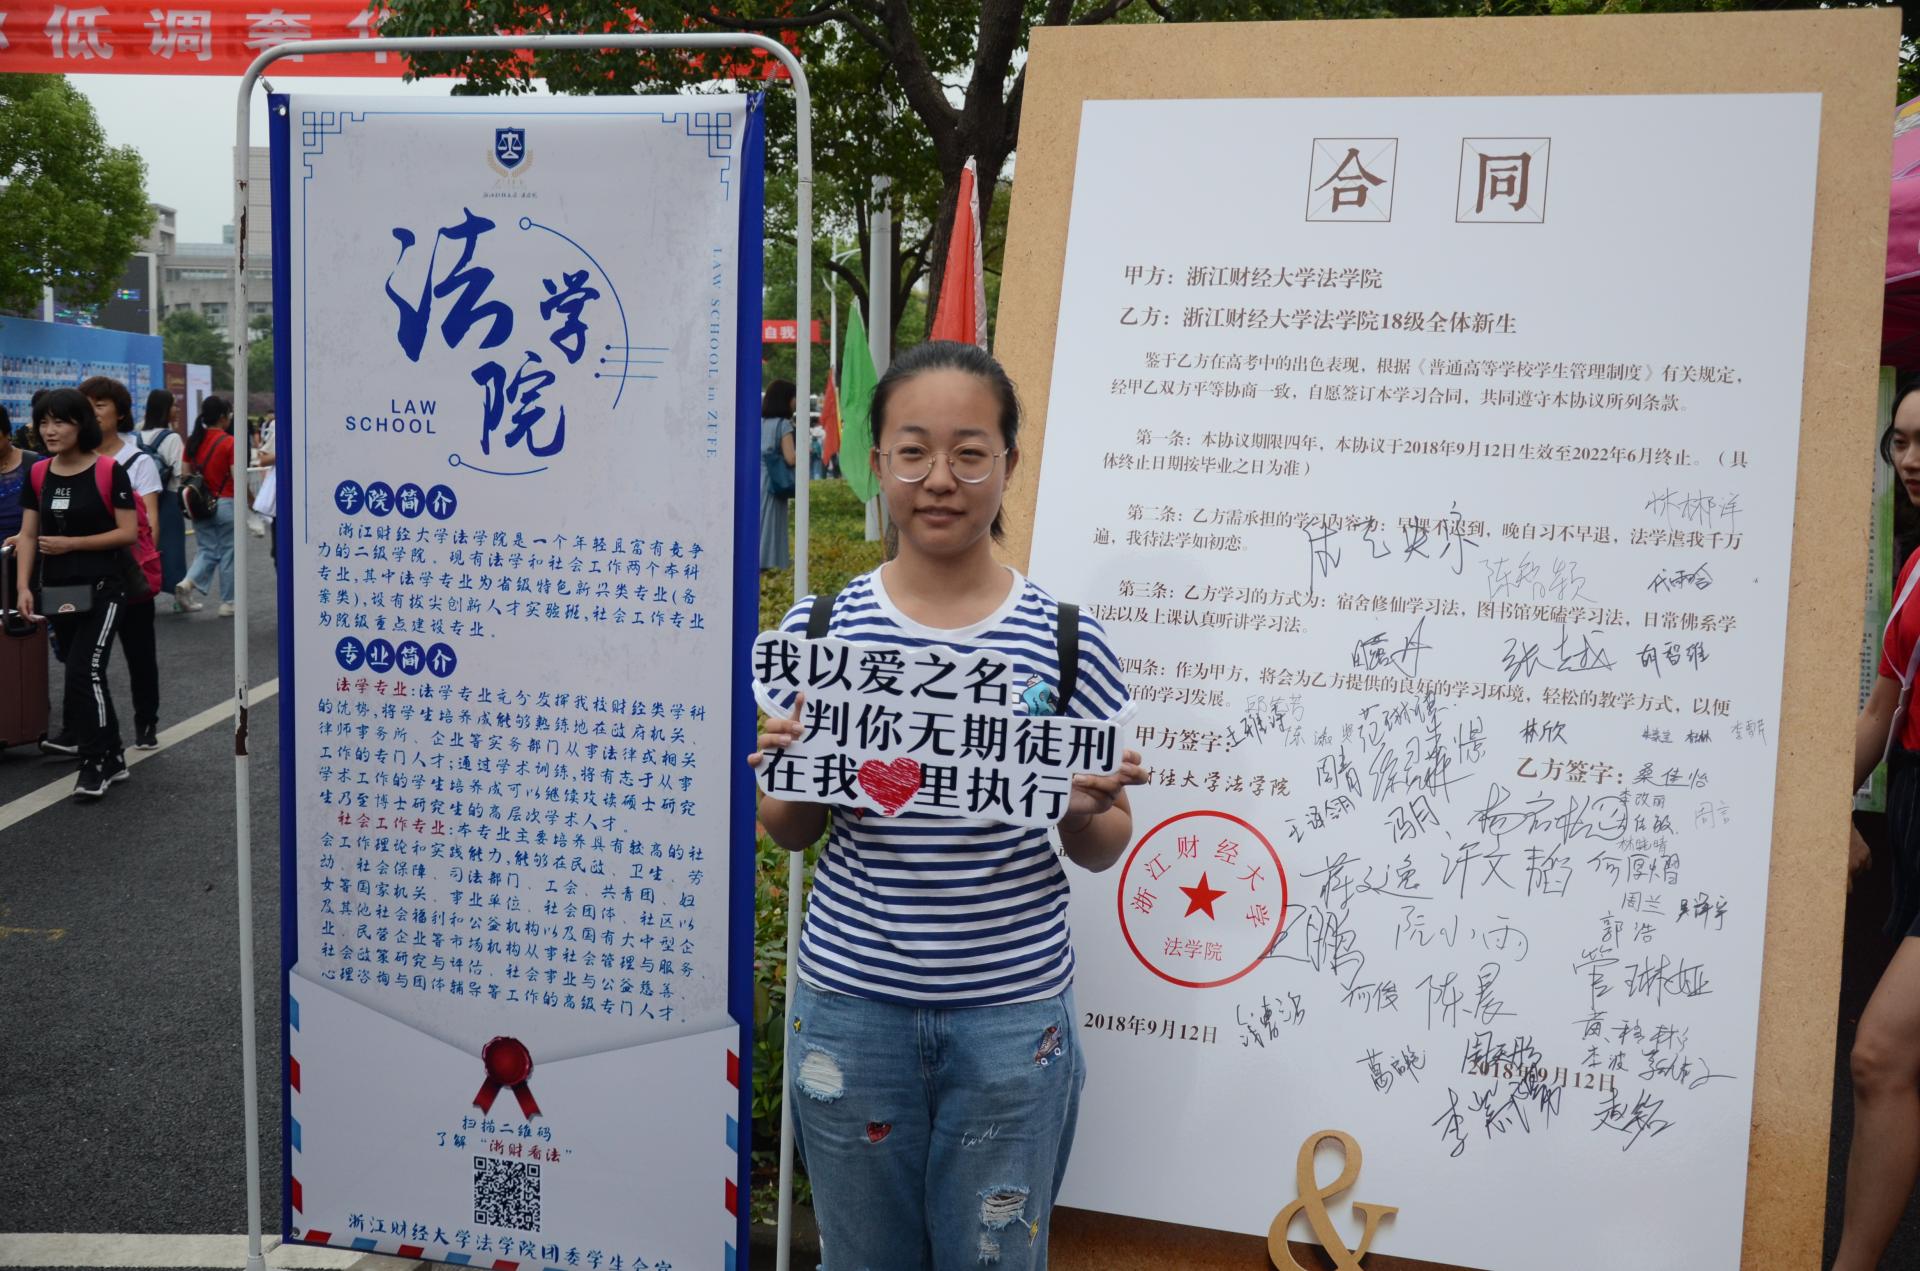 低调奢华
自我
法学院
LAW
SCHOOL
LAW SCHOOL in ZUFE
学院简介
浙江财经大学法学院是一个年轻且富有竞争
力的二级学院。现有法学和社会工作两个本科
专业,其中法学专业为省级特色新兴类专业(备
案类),设有拔尖创新人才实验班,社会工作专业
为院级重点建设专业。
专业简介
法学专业:法学专业充分发挥我校财经类学科
的优势,将学生培养成能够熟练地在政府机关、
律师事务所、企业等实务部门从事法律或相关
工作的专门人才;通过学术训练,将有志于从事
学术工作的学生培养成可以继续攻读硕士研究
生乃至博士研究生的高层次学术人才。
社会工作专业:本专业主要培养具有较高的社
会工作理论和实践能力,能够在民政、卫生、劳
动、社会保障、司法部门、工会、共青团、妇
女等国家机关、事业单位、社会团体、社区以
及其他社会福利和公益机构以及国有大中型企
业、民营企业等市场机构从事社会管理与服务、
社会政策研究与评估、社会事业与公益慈善、
心理咨询与团体辅导等工作的高级专门人才。
扫描二维码
了解“浙财看法”
浙江财经大学法学院团委学生会宣
我以爱之名
判你无期徒刑
在我里执行
合同
甲方：浙江财经大学法学院
乙方：浙江财经大学法学院18级全体新生
鉴于乙方在高考中的出色表现，根据《普通高等学校学生管理制度》有关规定，
经甲乙双方平等协商一致，自愿签订本学习合同，共同遵守本协议所列条款。
第一条：本协议期限四年，本协议于2018年9月12日生效至2022年6月终止。（具
体终止日期按毕业之日为准）
第二条：乙方需承担的学习内容为：早课不迟到，晚自习不早退，法学虐我千万
遍，我待法学如初恋。
第三条：乙方学习的方式为：宿舍修仙学习法，图书馆死磕学习法，日常佛系学
习法以及上课认真听讲学习法。
第四条：作为甲方，将会为乙方提供的良好的学习环境，轻松的教学方式，以便
好的学习发展。
林彬洋
陈智颖
张越
胡智雄
甲方签字：
林欣
乙方签字：
桑佳怡
财经大学法学院
李改丽
周言
冯月
蒋文逸
许文韬
周兰
郭浩
浙江财经大学
法学院
王鹏
阮小雨
管琳娅
何俊
陈晨
2018年9月12日
2018年9月12日
李波
赵铭
&